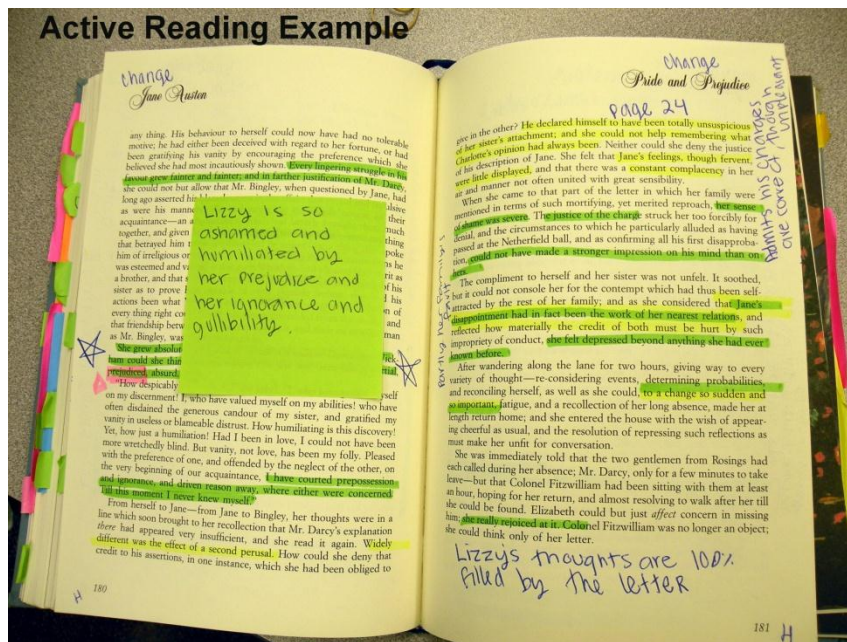 Active Reading Example
change
Jane Austen
any thing. His behaviour to herself could now have had no tolerable
motive; he had either been deceived with regard to her fortune, or had
been gratifying his vanity by encouraging the preference which she
believed she had most incautiously shown. Every lingering struggle in his
favour grew fainter and fainter; and in farther justification of Mr. Darcy,
she could not but allow that Mr. Bingley, when questioned by Jane, had
long ago asserted his
as were his manne
acquaintance—an a
together, and given
that betrayed him t
him of irreligious or
was esteemed and va
a brother, and that s
sister as to prove
actions been what
every thing right co
that friendship betw
as Mr. Bingley, was
She grew absolut
ham could she thin
prejudiced, absurd,
Lizzy is so
ashamed and
humiliated by
her prejudice and
her ignorance and
gullibility.
"How despicably
on my discernment! I, who have valued myself on my abilities! who have
often disdained the generous candour of my sister, and gratified my
vanity in useless or blameable distrust. How humiliating is this discovery!
Yet, how just a humiliation! Had I been in love, I could not have been
more wretchedly blind. But vanity, not love, has been my folly. Pleased
with the preference of one, and offended by the neglect of the other, on
the very beginning of our acquaintance, I have courted prepossession
and ignorance, and driven reason away, where either were concerned
Till this moment I never knew myself."
From herself to Jane—from Jane to Bingley, her thoughts were in a
line which soon brought to her recollection that Mr. Darcy's explanation
there had appeared very insufficient, and she read it again. Widely
different was the effect of a second perusal. How could she deny that
credit to his assertions, in one instance, which she had been obliged to
180
H
change
Pride and Prejudice
page 24
give in the other? He declared himself to have been totally unsuspicious
of her sister's attachment; and she could not help remembering what
Charlotte's opinion had always been. Neither could she deny the justice
of his description of Jane. She felt that Jane's feelings, though fervent,
were little displayed, and that there was a constant complacency in her
air and manner not often united with great sensibility.
When she came to that part of the letter in which her family were
mentioned in terms of such mortifying, yet merited reproach, her sense
of shame was severe. The justice of the charge struck her too forcibly for
denial, and the circumstances to which he particularly alluded as having
passed at the Netherfield ball, and as confirming all his first disapproba-
tion, could not have made a stronger impression on his mind than on
hers.
The compliment to herself and her sister was not unfelt. It soothed,
but it could not console her for the contempt which had thus been self-
attracted by the rest of her family; and as she considered that Jane's
disappointment had in fact been the work of her nearest relations, and
reflected how materially the credit of both must be hurt by such
impropriety of conduct, she felt depressed beyond anything she had ever
known before.
After wandering along the lane for two hours, giving way to every
variety of thought—re-considering events, determining probabilities,
and reconciling herself, as well as she could, to a change so sudden and
so important, fatigue, and a recollection of her long absence, made her at
length return home; and she entered the house with the wish of appear-
ing cheerful as usual, and the resolution of repressing such reflections as
must make her unfit for conversation.
She was immediately told that the two gentlemen from Rosings had
each called during her absence; Mr. Darcy, only for a few minutes to take
leave—but that Colonel Fitzwilliam had been sitting with them at least
an hour, hoping for her return, and almost resolving to walk after her till
she could be found. Elizabeth could but just affect concern in missing
him; she really rejoiced at it. Colonel Fitzwilliam was no longer an object;
she could think only of her letter.
Admits his charges
are correct though
unpleasant
partly her family's
fault
Lizzys thoughts are 100%
filled by the letter
181
H